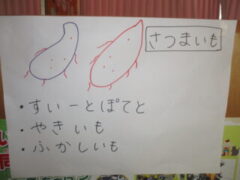 さつまいも
・すいーとぽてと
・やきいも
・ふかしいも